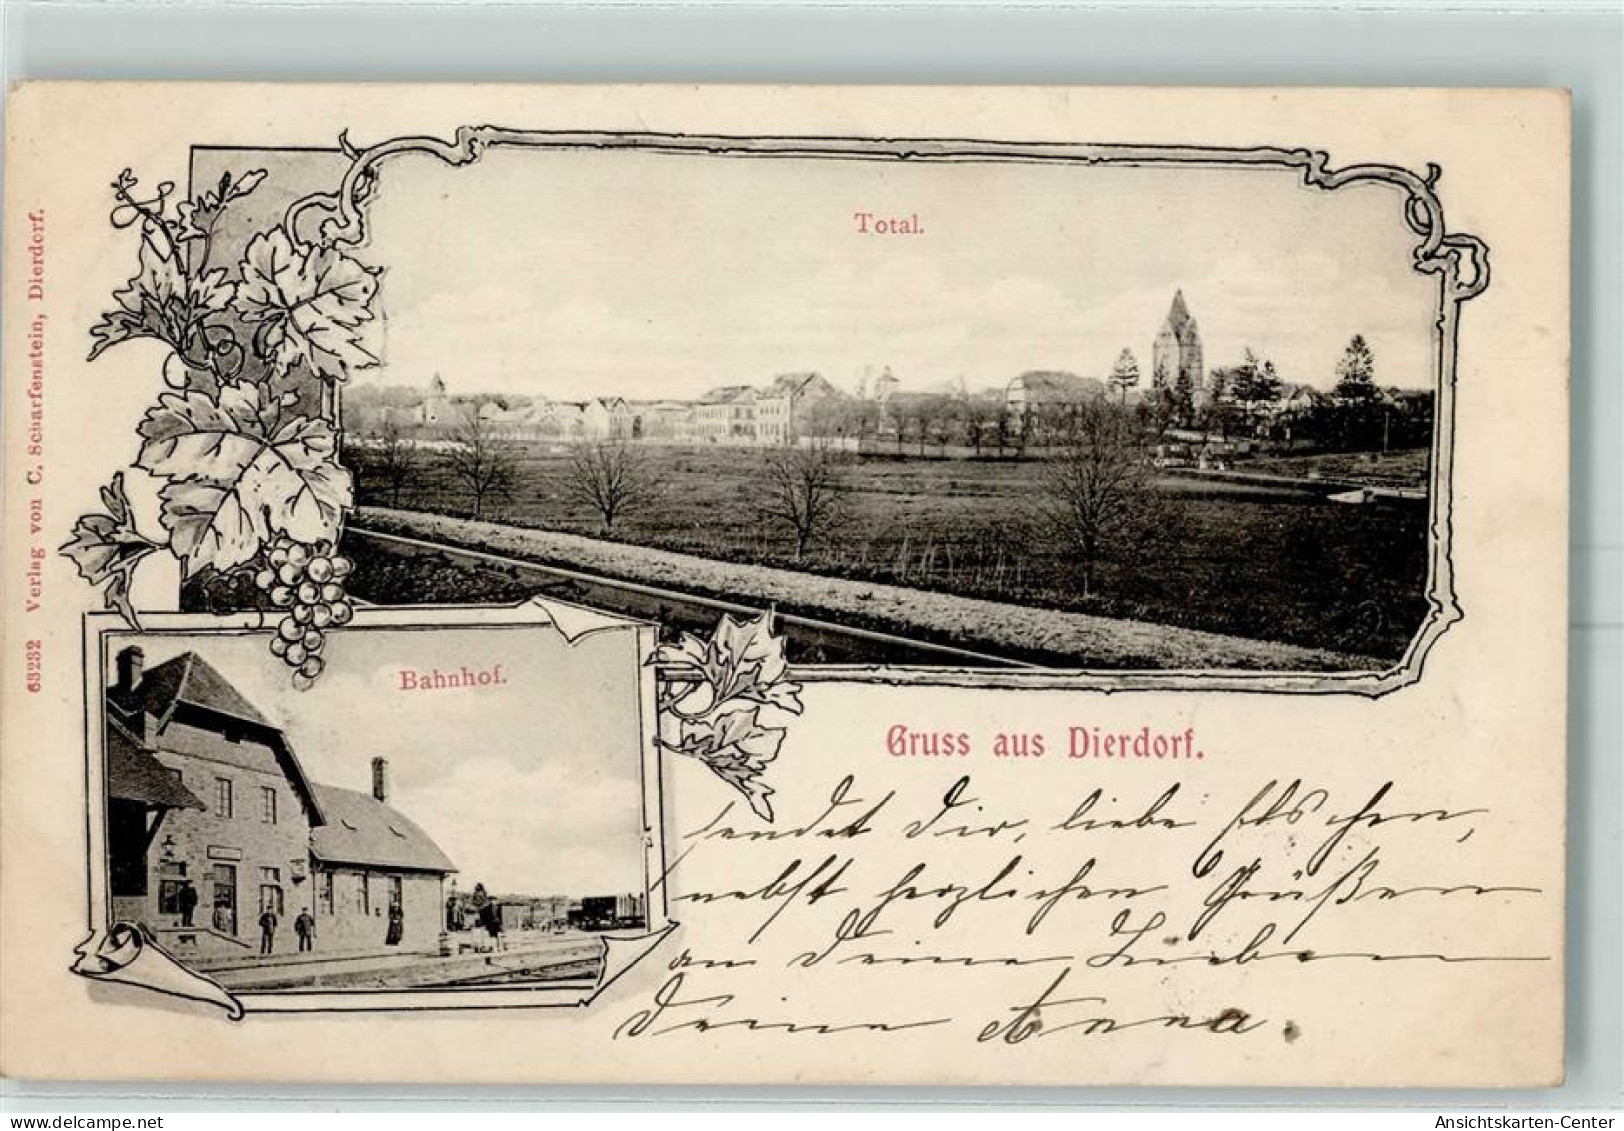 Total.
63232 Verlag von C. Scharfenstein, Dierdorf.
Bahnhof.
Gruss aus Dierdorf.
sendet Dir, liebe Elschen,
nebst herzlichen Grüßen
an Deine Lieben
Deine Anna.
Ansichtskarten-Center